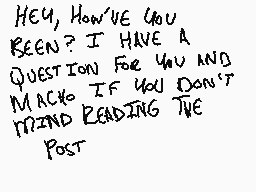 HEY, HOW'VE YOU
BEEN? I HAVE A
QUESTION FOR YOU AND
MACHO IF YOU DON'T
MIND READING THE
POST